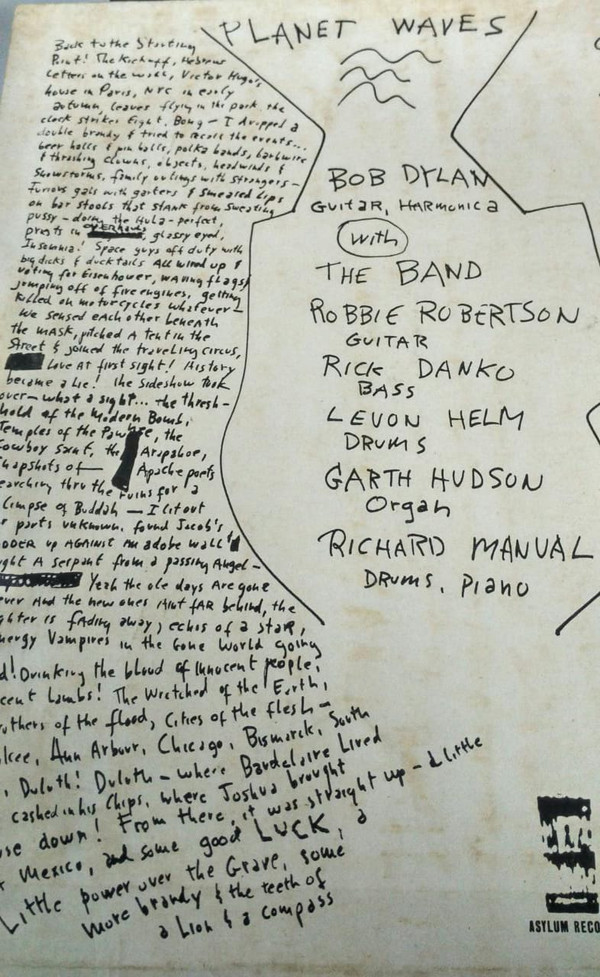 PLANET WAVES
Back to the Starting
Point! The Kickoff, Hebrew
Letters on the wall, Victor Hugo's
house in Paris, NYC in early
autumn, leaves flying in the park, the
clock strikes Eight, Bong — I dropped a
double brandy & tried to recall the events...
beer halls & pin balls, polka bands, barbwire
& thrashing clowns, objects, headwinds &
Snowstorms, family outings with strangers —
Furious gals with garters & smeared Lips
on bar stools that stank from sweating
pussy — doing the Hula — perfect,
prests in , glassy eyed,
Insomnia! Space guys off duty with
big dicks & ducktails All wired up &
voting for Eisenhower, waving flags &
jumping off of fire engines, getting
Killed on motorcycles whatever —
We sensed each other beneath
the MASK, pitched A tent in the
Street & joined the traveling circus,
Love At first sight! History
became a Lie! the sideshow took
over — what a sight... the thresh-
hold of the Modern Bomb,
Temples of the Pawnee, the
Cowboy Saint, the Arapahoe,
napshots of — Apache poets
earching thru the ruins for a
Glimpse of Buddah — I lit out
r parts unknown, found Jacob's
DDER up AGAINST An adobe wall &
ught A serpent from a passing Angel —
Yeah the ole days Are gone
ever And the new ones Aint fAR behind, the
ghter is fAding away, echos of a staR,
nergy Vampires in the Gone World going
d! Drinking the blood of innocent people,
cent Lambs! The Wretched of the Earth,
rothers of the flood, Cities of the flesh —
kee, Ann Arbour, Chicago, Bismarck, South
, Duluth! Duluth — where Baudelaire Lived
cashed in his Chips, where Joshua brought
se down! From there, it was straight up — a Little
Mexico, and some good LUCK, a
Little power over the Grave, some
more brandy & the teeth of
a Lion & a compass
BOB DYLAN
GUITAR, HARMONICA
with
THE BAND
ROBBIE ROBERTSON
GUITAR
RICK DANKO
BASS
LEVON HELM
DRUMS
GARTH HUDSON
Organ
RICHARD MANUAL
DRUMS, Piano
ASYLUM RECO